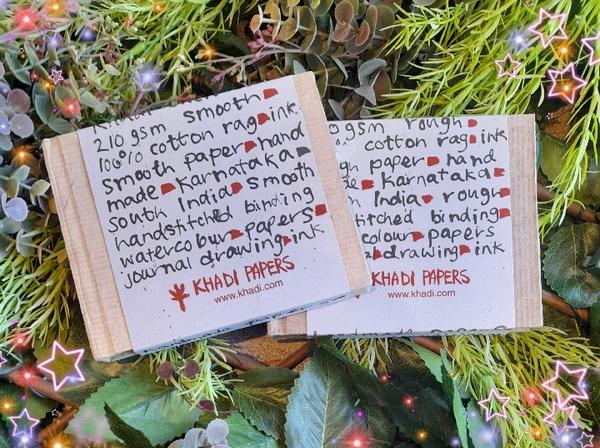 smooth
210 gsm
100% cotton rag ink
smooth paper hand
made Karnataka
South India smooth
handstitched binding
watercolour papers
journal drawing ink
KHADI PAPERS
www.khadi.com
gsm rough
cotton rag ink
paper hand
Karnataka
India rough
binding
papers
drawing ink
KHADI PAPERS
www.khadi.com